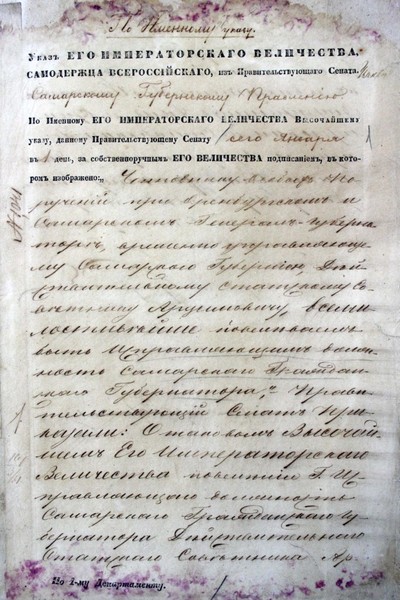 По Именному указу.
Указъ ЕГО ИМПЕРАТОРСКАГО ВЕЛИЧЕСТВА
САМОДЕРЖЦА ВСЕРОССІЙСКАГО, изъ Правительствующаго Сената.
Самарскому Губернскому Правленію
По Именному ЕГО ИМПЕРАТОРСКАГО ВЕЛИЧЕСТВА Высочайшему
указу, данному Правительствующему Сенату сего Января
въ 1 день, за собственноручнымъ ЕГО ВЕЛИЧЕСТВА подписаніемъ, въ кото-
ромъ изображено: „Чиновнику особыхъ По
рученій при Оренбургскомъ и
Самарскомъ Генералъ-Губерна
торѣ, временно управляюще
му Самарскою Губерніею, Дѣй
ствительному Статскому Со-
вѣтнику Арцимовичу, всеми
лостивѣйше повелѣваемъ
быть Исправляющимъ долж-
ность Самарскаго Граждан-
скаго Губернатора," Прави-
тельствующій Сенатъ При
казали: О таковомъ Высочай-
шемъ Его Императорскаго
Величества повелѣніи Г. Ис
правляющаго должность
Самарскаго Гражданскаго Гу-
бернатора Дѣйствительнаго
Статскаго Совѣтника Ар-
По 1-му Департаменту.